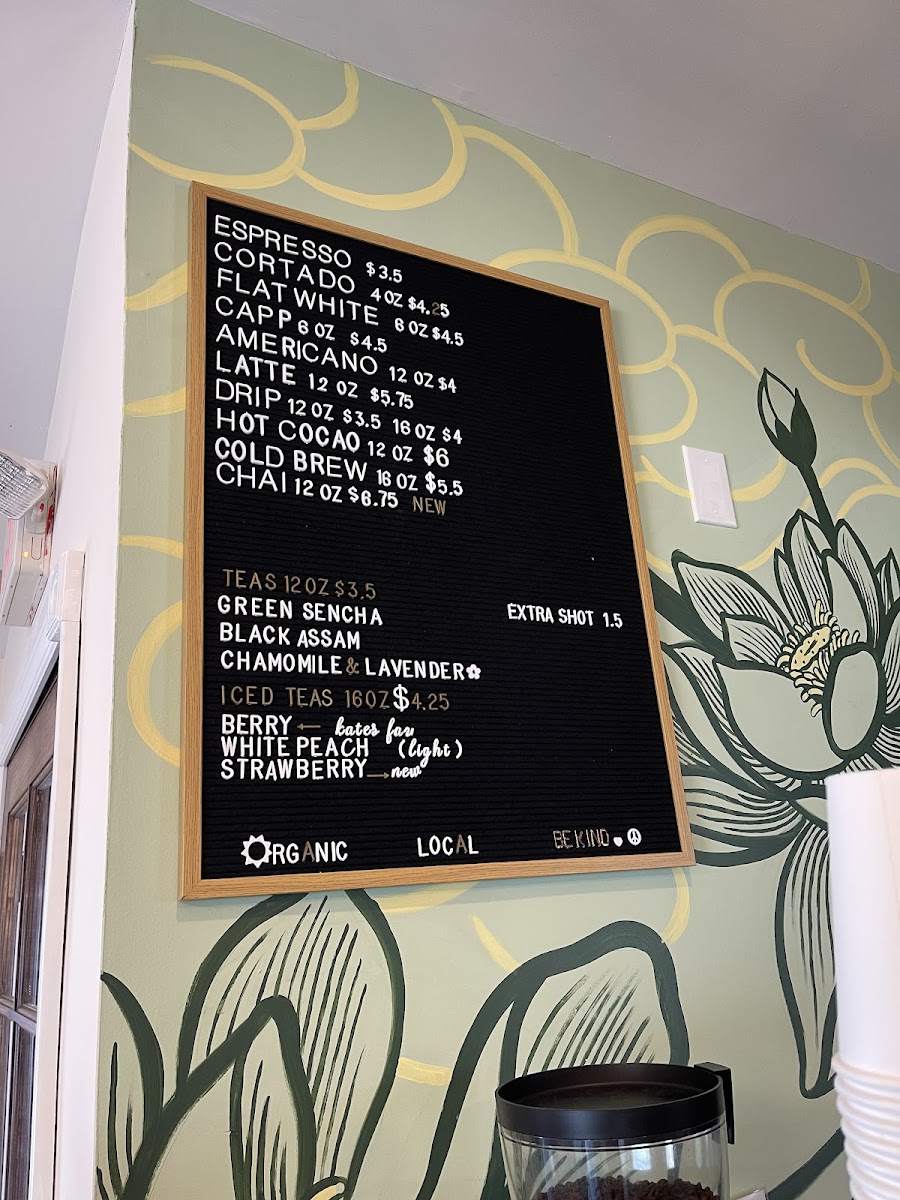 ESPRESSO $3.5
CORTADO 4 OZ $4.25
FLAT WHITE 6 OZ $4.5
CAPP 6 OZ $4.5
AMERICANO 12 OZ $4
LATTE 12 OZ $5.75
DRIP 12 OZ $3.5 16 OZ $4
HOT COCAO 12 OZ $6
COLD BREW 16 OZ $5.5
CHAI 12 OZ $6.75 NEW
TEAS 12 OZ $3.5
GREEN SENCHA
EXTRA SHOT 1.5
BLACK ASSAM
CHAMOMILE & LAVENDER
ICED TEAS 16OZ $4.25
BERRY ← kates fav
WHITE PEACH (light)
STRAWBERRY → new
ORGANIC LOCAL BE KIND